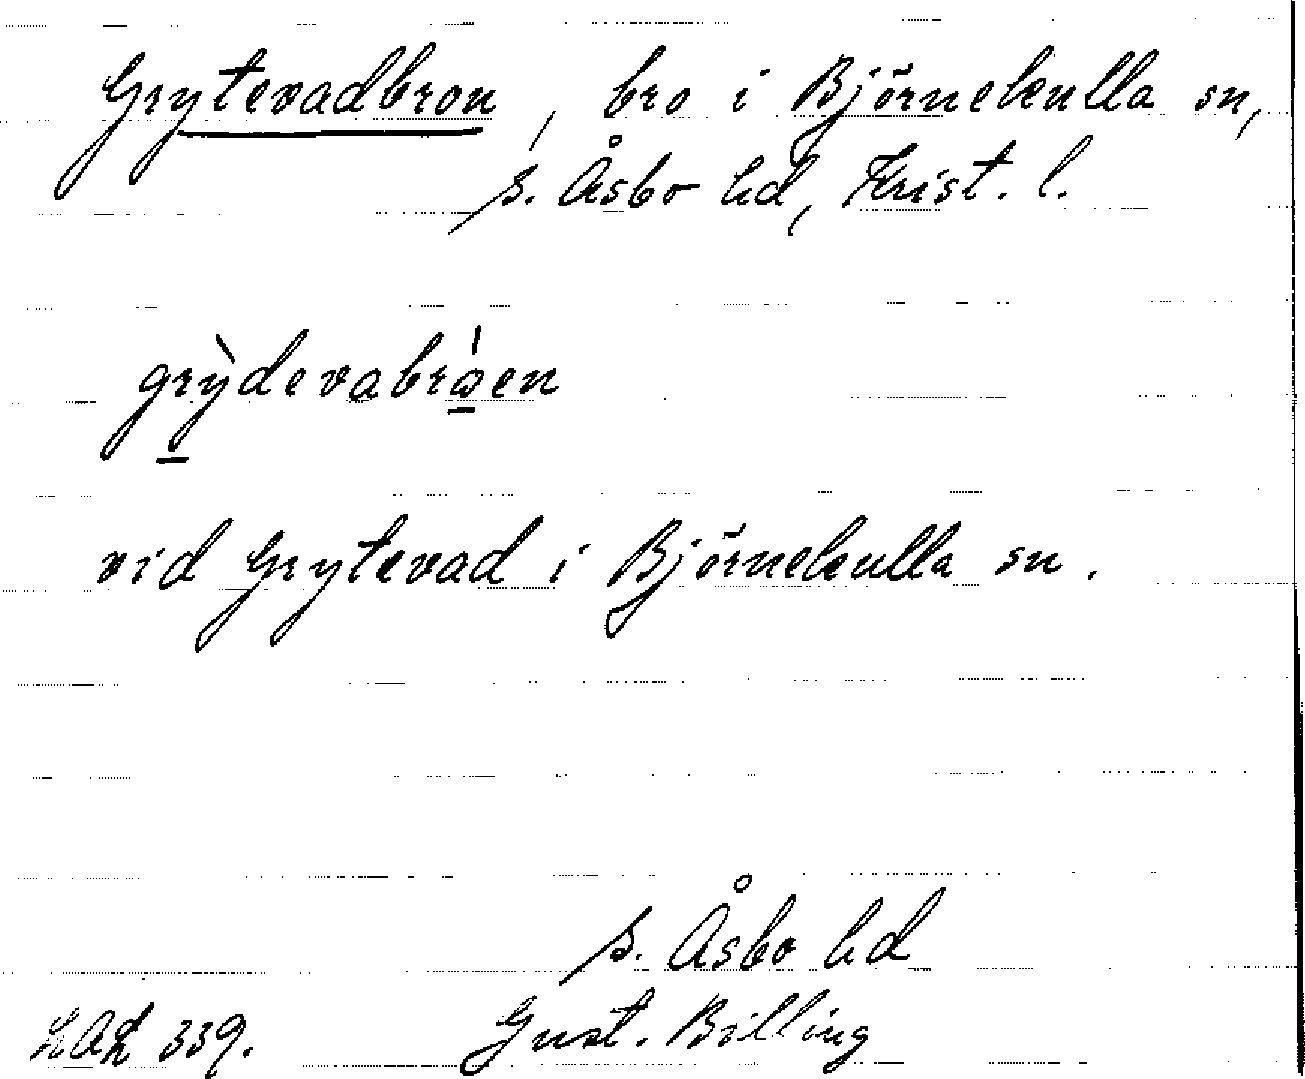 Grytevadbron, bro i Björnekulla sn,
S. Åsbo hd, Krist. l.
grỳdevabróen
vid Grytevad i Björnekulla sn.
S. Åsbo hd
LAL 339. Gust. Billing